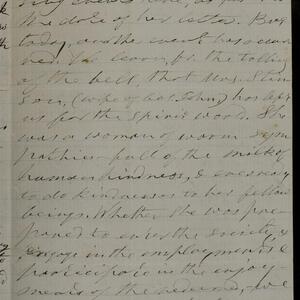 the date of her letter. But
today, and the event has occur
red. We learn, by the tolling
of the bell, that Mrs. Stim
son, (wife of Col. John,) has left
us for the spirit world. She
was a woman of warm sym
pathies full of the milk of
human kindness, & ever ready
to do kindnesses to her fellow
beings. Whether she was pre
pared to enter the society, &
engage in the employments &
participate in the enjoy
ments of the redeemed, we